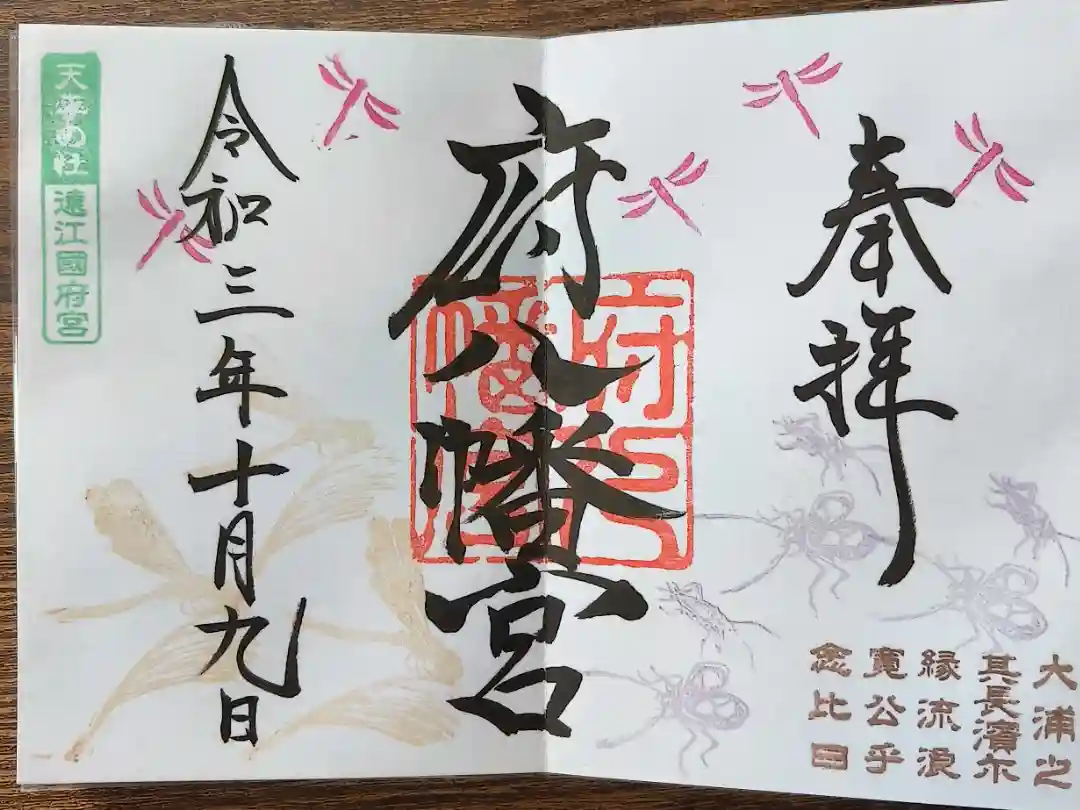 奉拝
大浦之
其長濱尓
縁流浪
寛公乎
念比日
府八幡宮
府八幡宮
令和三年十月九日
遠江國府宮